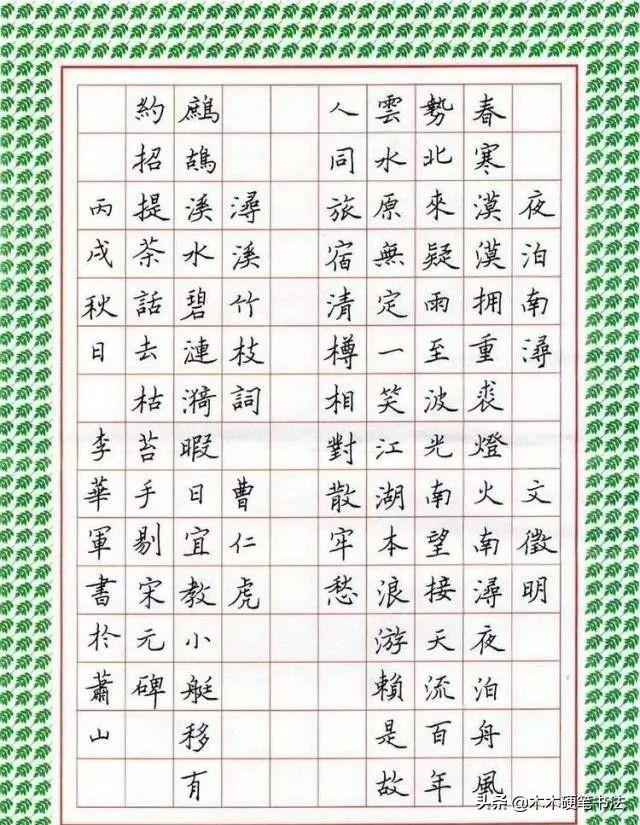 夜泊南潯 文徵明
春寒漠漠拥重裘燈火南潯夜泊舟風
勢北來疑雨至波光南望接天流百年
雲水原無定一笑江湖本浪游賴是故
人同旅宿清樽相對散牢愁
潯溪竹枝詞 曹仁虎
鷓鴣溪水碧漣漪暇日宜教小艇移有
約招提茶話去枯苔手剔宋元碑
丙戌秋日 李華軍書於蕭山
头条 @木木硬笔书法